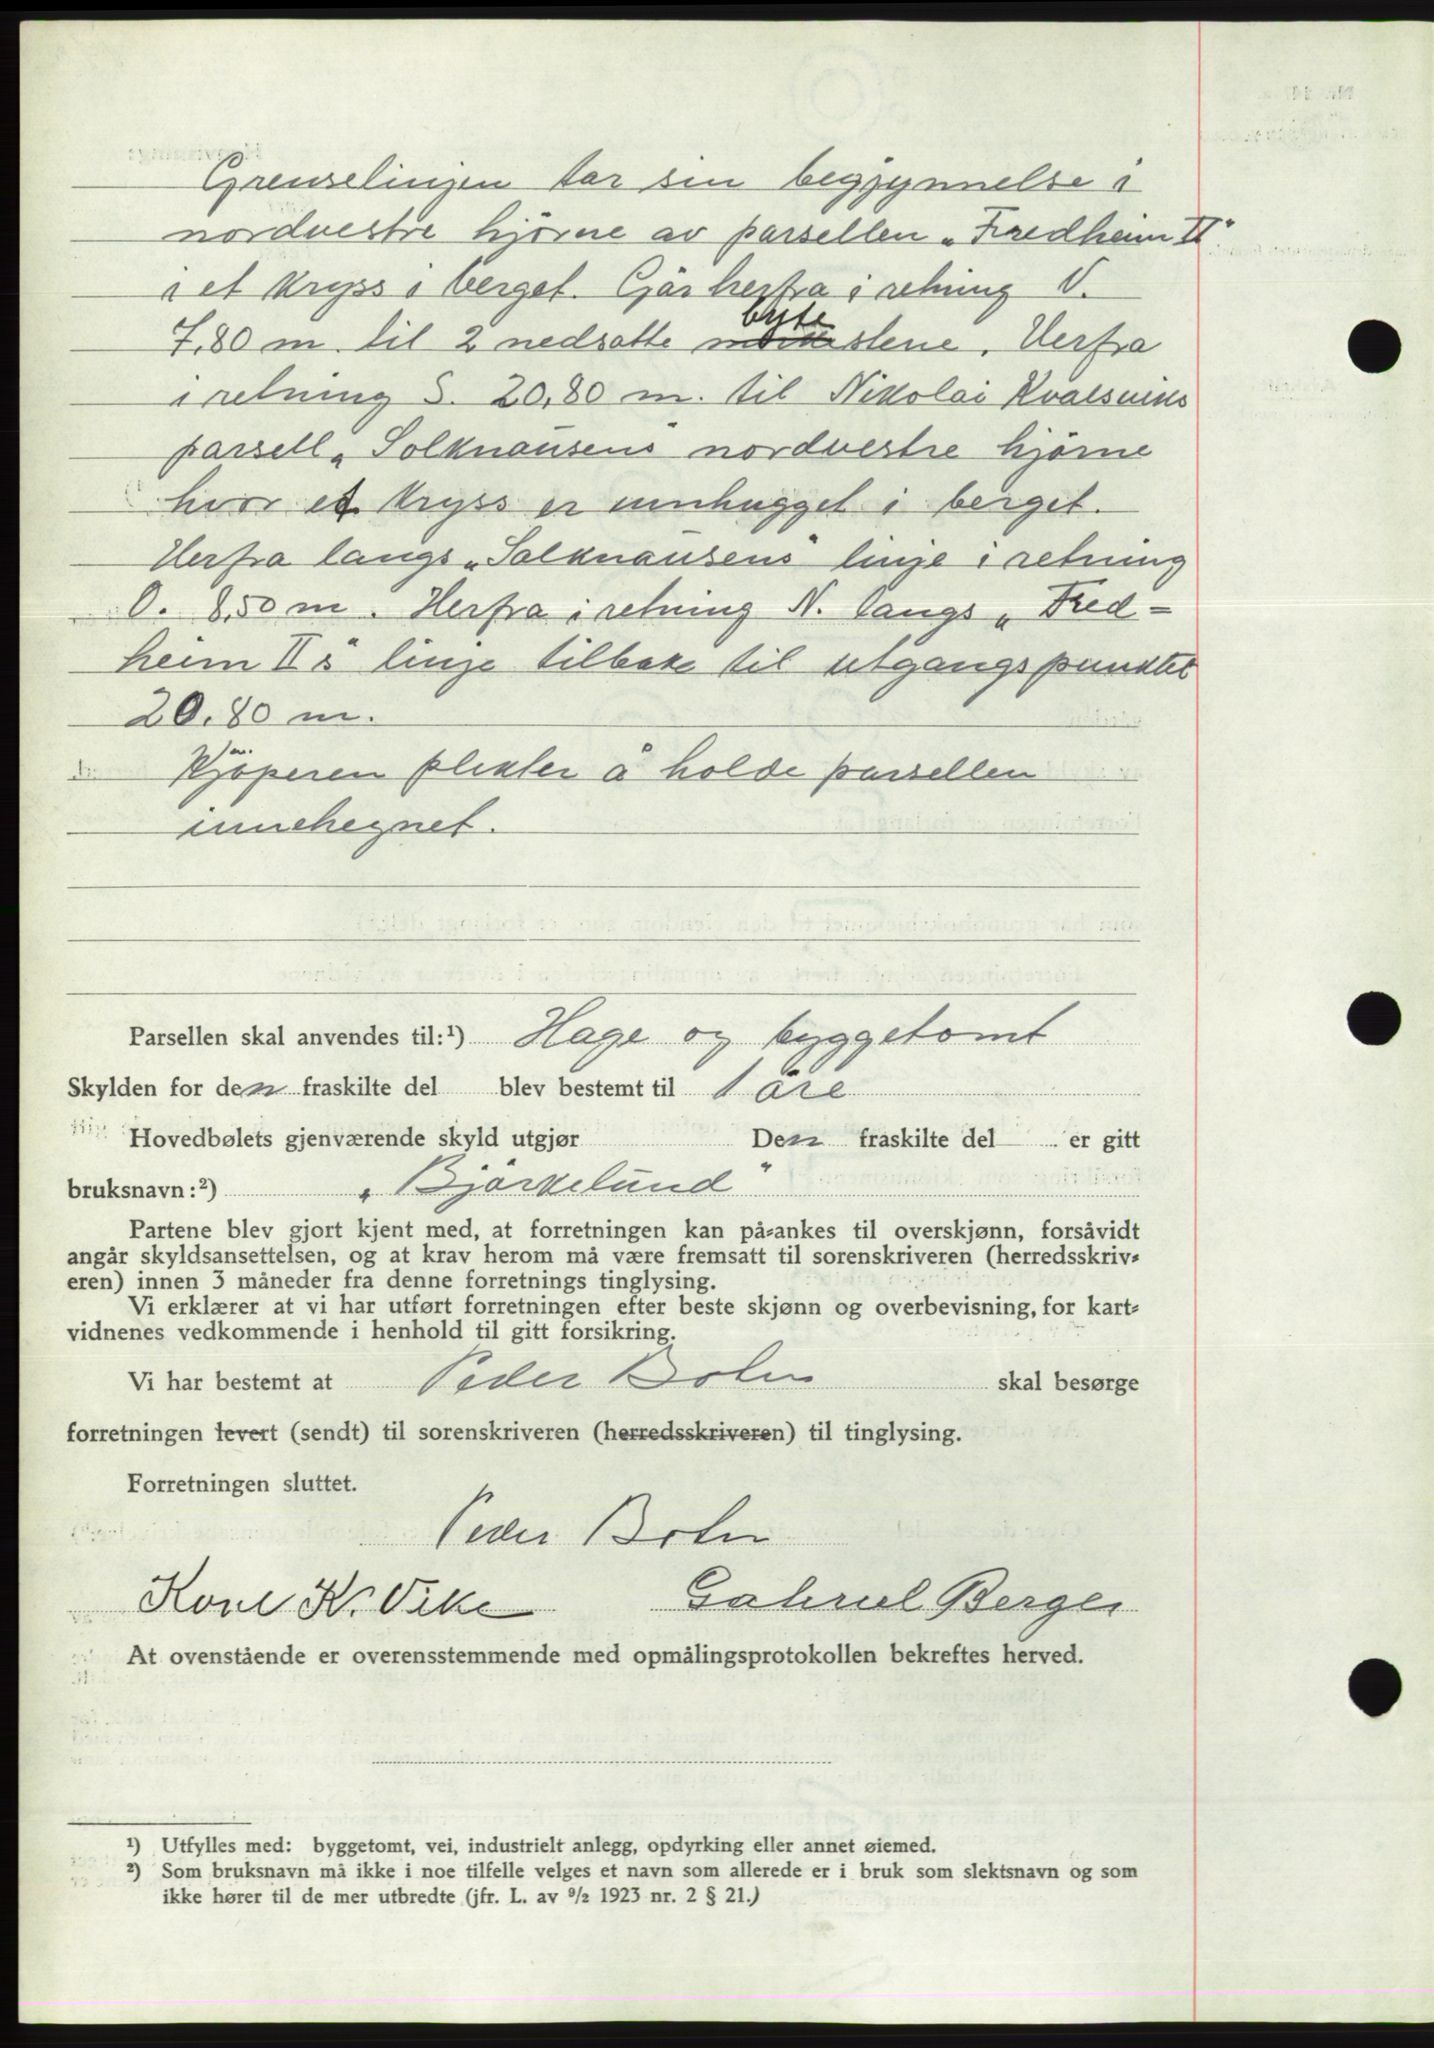 Grenselinjen tar sin begjynnelse i
nordvestre hjørne av parsellen „Fredheim II"
i et kryss i berget. Går herfra i retning V.
7,80 m. til 2 nedsatte byte stene. Herfra
i retning S. 20,80 m. til Nikolai Kvalsviks
parsell „Solknausens" nordvestre hjørne
hvor et kryss er innhugget i berget.
Herfra langs „Solknausens" linje i retning
O. 8,50 m. Herfra i retning N. langs „Fred=
heim II's" linje tilbake til utgangspunktet
20,80 m.
Kjøperen plikter å holde parsellen
innehegnet.
Parsellen skal anvendes til:¹) Hage og byggetomt
Skylden for den fraskilte del blev bestemt til 1 øre
Hovedbølets gjenværende skyld utgjør Den fraskilte del er gitt
bruksnavn:²) „Bjørkelund"
Partene blev gjort kjent med, at forretningen kan på=ankes til overskjønn, forsåvidt
angår skyldsansettelsen, og at krav herom må være fremsatt til sorenskriveren (herredsskriv=
eren) innen 3 måneder fra denne forretnings tinglysing.
Vi erklærer at vi har utført forretningen efter beste skjønn og overbevisning, for kart=
vidnenes vedkommende i henhold til gitt forsikring.
Vi har bestemt at Peder Bolm skal besørge
forretningen levert (sendt) til sorenskriveren (herredsskriveren) til tinglysing.
Forretningen sluttet.
Peder Bolm
K. Vike Gabriel Berge
At ovenstående er overensstemmende med opmålingsprotokollen bekreftes herved.
¹) Utfylles med: byggetomt, vei, industrielt anlegg, opdyrking eller annet øiemed.
²) Som bruksnavn må ikke i noe tilfelle velges et navn som allerede er i bruk som slektsnavn og som
ikke hører til de mer utbredte (jfr. L. av 9/2 1923 nr. 2 § 21.)